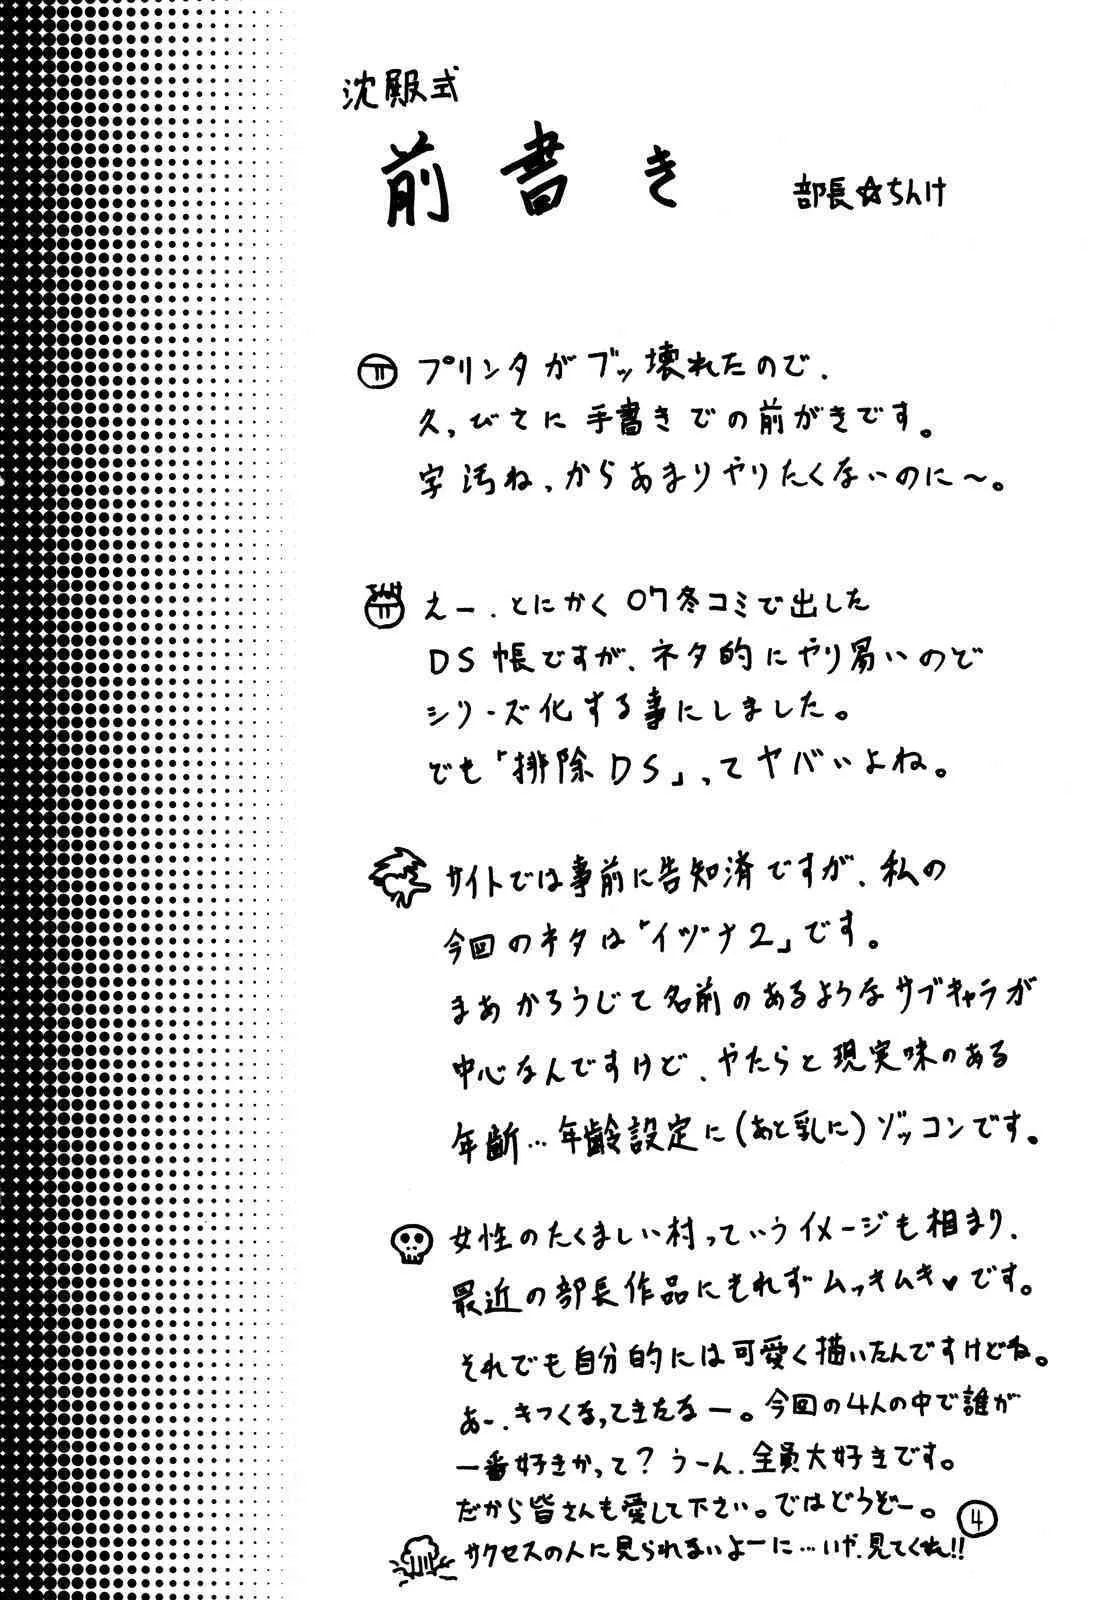 沈殿式
前書き
部長☆ちんけ
プリンタがブッ壊れたので、
久っびさに手書きでの前がきです。
字汚ねっからあまりやりたくないのに～。
えー、とにかく07冬コミで出した
DS帳ですが、ネタ的にやり易いので
シリーズ化する事にしました。
でも「排除DS」ってヤバいよね。
サイトでは事前に告知済ですが、私の
今回のネタは「イヅナ2」です。
まあかろうじて名前のあるようなサブキャラが
中心なんですけど、やたらと現実味のある
年齢…年齢設定に(あと乳に)ゾッコンです。
女性のたくましい村っていうイメージも相まり、
最近の部長作品にもれずムっきムき♥です。
それでも自分的には可愛く描いたんですけどね。
あー、きつくなってきたなー。今回の4人の中で誰が
一番好きかって?うーん、全員大好きです。
だから皆さんも愛して下さい。ではどうぞー。
4
サクセスの人に見られないよーに…いや、見てくれ!!